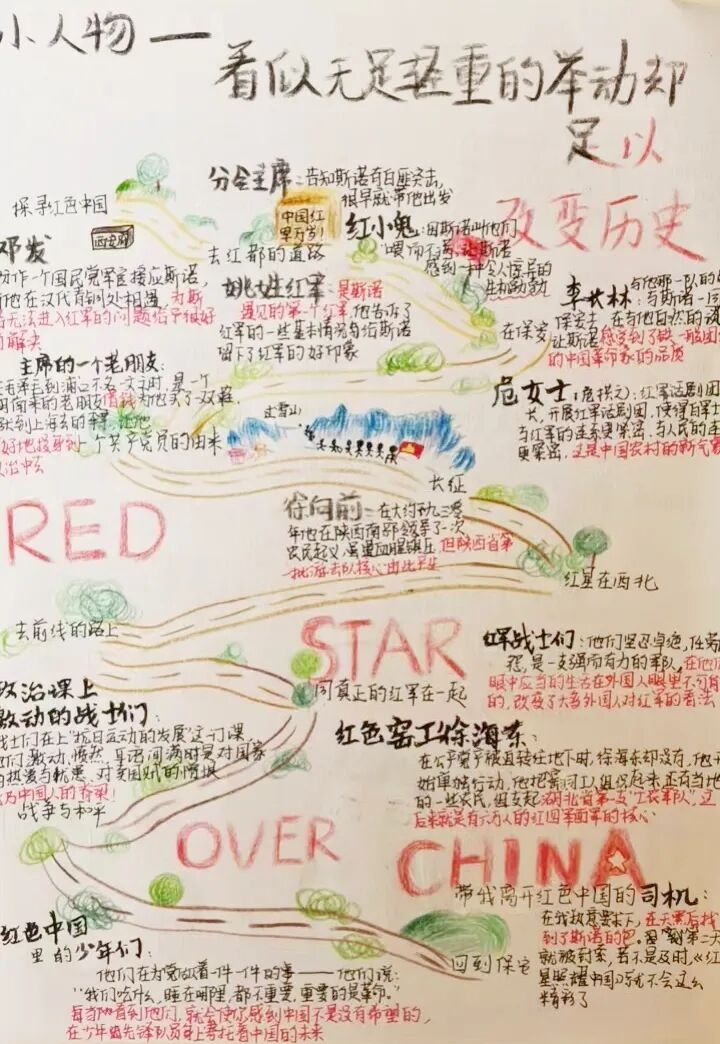 小人物一
看似无足轻重的举动却
足以
改变历史
探寻红色中国
西安府
分会主席：告知斯诺有白匪突击，
很早就带他出发
中国红
军万岁！
去红都的道路
红小鬼：因斯诺叫他们
"喂"而不满，让斯诺
感到一种令人惊异的
生机勃勃
邓发
协作一个国民党军官接应斯诺，
与他在汉代首都处相遇，为斯
诺无法进入红军的问题给予很好
的解决
姚姓红军：是斯诺
遇见的第一个红军，他告诉了
红军的一些基本情况与给斯诺
留下了红军的好印象
在保安
李长林：
与斯诺一同
保安去
在与他自然的谈
让斯诺感觉到了铁一般团
的中国革命家的品质
主席的一个老朋友：
毛泽东到浦口不名一文时，是一个
借钱为他买了一双鞋，
好地接穿到一个共产党员的由来
过雪山
长征
危女士：（危拱之）：红军话剧团团
长，开展红军话剧团，使得百军士
与红军的连系更紧密，与人民的连
更紧密，这是中国农村的新气象
RED
徐向前：在大约一九三零
年他在陕西南部领导了一次
农民起义，虽遭血腥镇压，但陕西省第
一批游击队核心由此产生
红星在西北
去前线的路上
STAR
同真正的红军在一起
红军战士们：他们坚忍卓绝，任劳
怨，是一支强而有力的军队，在他们
眼中应当的生活在外国人眼里不可
的，改变了大多外国人对红军的看法
政治课上
激动的战士们：
战士们在上"抗日运动的发展"这一门课，
他们激动，愤然，车话间满时是对国家
的热爱与忧患，对卖国贼的憎恨
成为中国人的脊梁！
战争与和平
红色窑工徐海东：
在共产党予被直转往地下时，徐海东却没有，他开
始单独行动，他把窑词工人组织起来，还有当地
的一些农民，组支起湖北省第一支"工农军队"，这
后来就是有六万人的红四军面军的核心
OVER
CHINA
带我离开红色中国的司机：
在我极其恳求下，在天黑后找
到了斯诺的包。因 到第二天
就被封索，若不是及时，《红
星照耀中国》可就不会这么
精彩了
回到保安
红色中国
里的少年们：
他们在为党做着一件一件的事——他们说：
"我们吃什么，睡在哪里，都不重要，重要的是革命。"
每当你看到他们，就会使你感到中国不是没有希望的，
在少年的先锋队员身上寄托着中国的未来